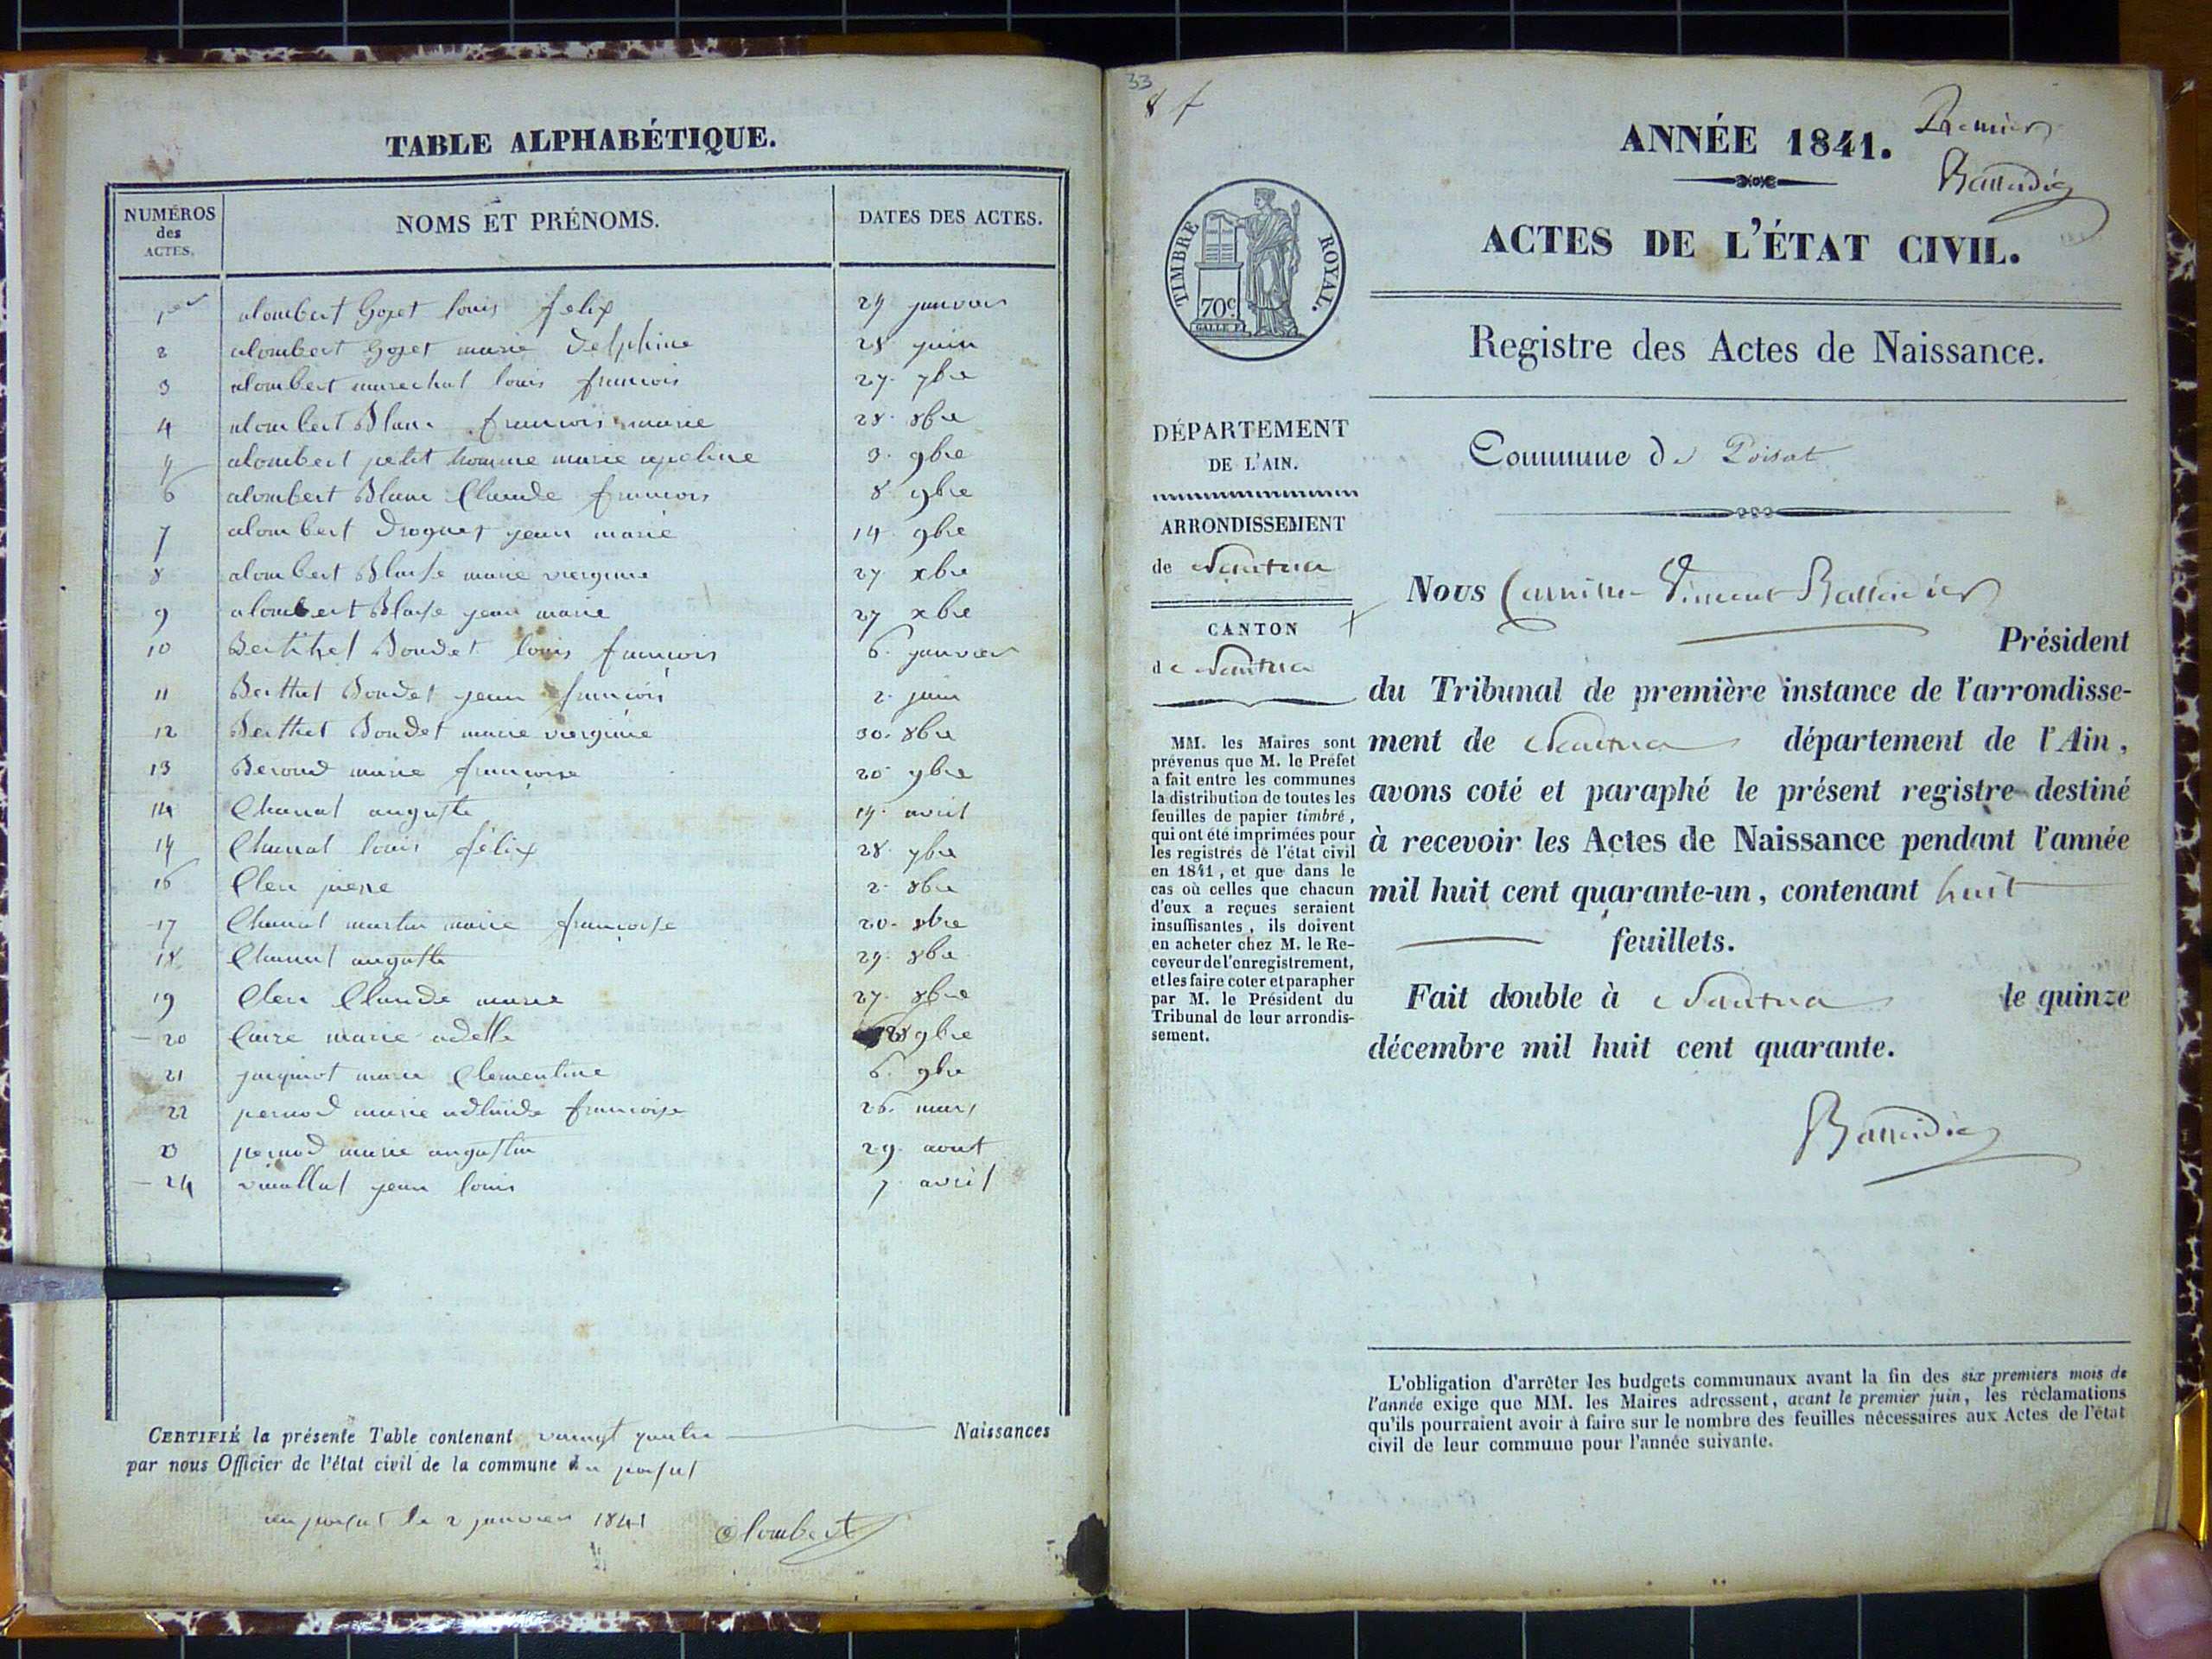 TABLE ALPHABÉTIQUE.
NUMÉROS des ACTES. NOMS ET PRÉNOMS. DATES DES ACTES.
1er alombert Gojet louis felix 29 janvier
2 alombert Gojet marie Delphine 28 juin
3 alombert marechal louis francois 27. 7bre
4 alombert Blanc francois marie 28. 8bre
5 alombert petit homme marie apoline 3. 9bre
6 alombert Blanc Claude francois 8 9bre
7 alombert Droguet jean marie 14. 9bre
8 alombert Blaise marie virginie 27 xbre
9 alombert Blaise jean marie 27 xbre
10 Berthet Bondet louis francois 6. janvier
11 Berthet Bondet jean francois 2. juin
12 Berthet Bondet marie virginie 30. 8bre
13 Beroud marie francoise 20 9bre
14 Chanal auguste avril
15 Chanal louis félix 28. 7bre
16 Clerc pierre 2. 8bre
17 Chanal martin marie françoise 20. 8bre
18 Chanal auguste 29. 8bre
19 Clerc Claude marie 27. 8bre
20 Caire marie adelle 9bre
21 jacquinot marie Clementine 6. 9bre
22 pernod marie adlaide francoise 26. mars
23 pernod marie augustin 29. aout
24 vuaillat jean louis 7. avril
CERTIFIÉ la présente Table contenant vaingt quatre Naissances
par nous Officier de l'état civil de la commune de poisat
au poisat le 2 janvier 1841 alombert
33
8 f
ANNÉE 1841. Premier
ACTES DE L'ÉTAT CIVIL.
TIMBRE ROYAL.
70c
Registre des Actes de Naissance.
DÉPARTEMENT
DE L'AIN.
ARRONDISSEMENT
de Nantua
CANTON
de Nantua
MM. les Maires sont
prévenus que M. le Préfet
a fait entre les communes
la distribution de toutes les
feuilles de papier timbré,
qui ont été imprimées pour
les registres de l'état civil
en 1841, et que dans le
cas où celles que chacun
d'eux a reçues seraient
insuffisantes, ils doivent
en acheter chez M. le Re-
ceveur de l'enregistrement,
et les faire coter et parapher
par M. le Président du
Tribunal de leur arrondis-
sement.
Commune de Poisat
Nous Camille Vincent
Président
du Tribunal de première instance de l'arrondisse-
ment de Nantua département de l'Ain,
avons coté et paraphé le présent registre destiné
à recevoir les Actes de Naissance pendant l'année
mil huit cent quarante-un, contenant huit
feuillets.
Fait double à Nantua le quinze
décembre mil huit cent quarante.
L'obligation d'arrêter les budgets communaux avant la fin des six premiers mois de
l'année exige que MM. les Maires adressent, avant le premier juin, les réclamations
qu'ils pourraient avoir à faire sur le nombre des feuilles nécessaires aux Actes de l'état
civil de leur commune pour l'année suivante.